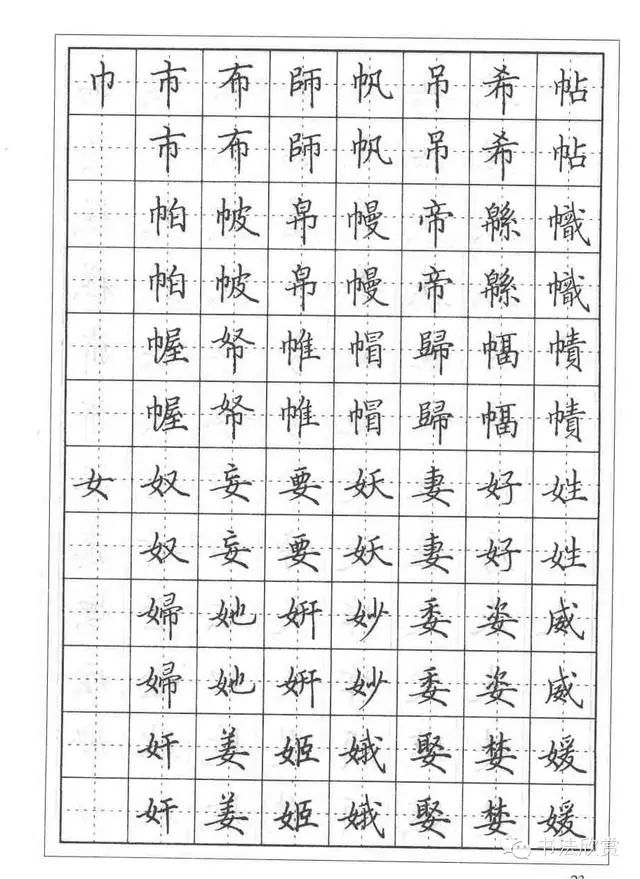 巾市布師帆吊希帖
市布師帆吊希帖
帕帔帛幔帝緜幟
帕帔帛幔帝緜幟
幄帑帷帽歸幅幘
幄帑帷帽歸幅幘
女奴妄要妖妻好姓
奴妄要妖妻好姓
婦她妍妙委姿威
婦她妍妙委姿威
奸姜姬娥娶婪媛
奸姜姬娥娶婪媛
书法欣赏